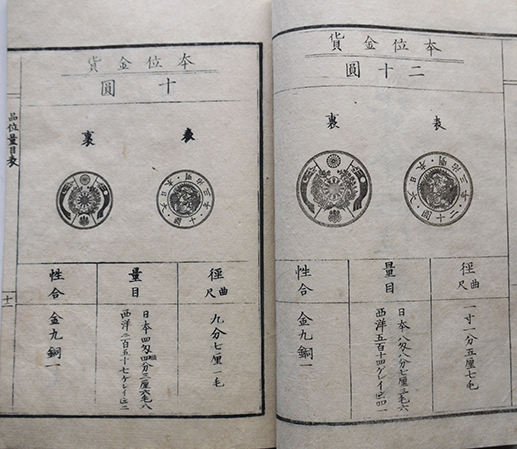 本位金貨
二十圓
表
裏
大日本・明治三年・二十圓・
徑 曲尺
一寸一分五厘七毛
量目
日本八匁八分七厘三毛六
西洋五百十四ゲレイン四一
性合
金九銅一
本位金貨
十圓
表
裏
大日本・明治三年・十圓・
徑 曲尺
九分七厘一毛
量目
日本四匁四分三厘六毛八
西洋二百五十七ゲレイン二
性合
金九銅一
品位量目表
十一